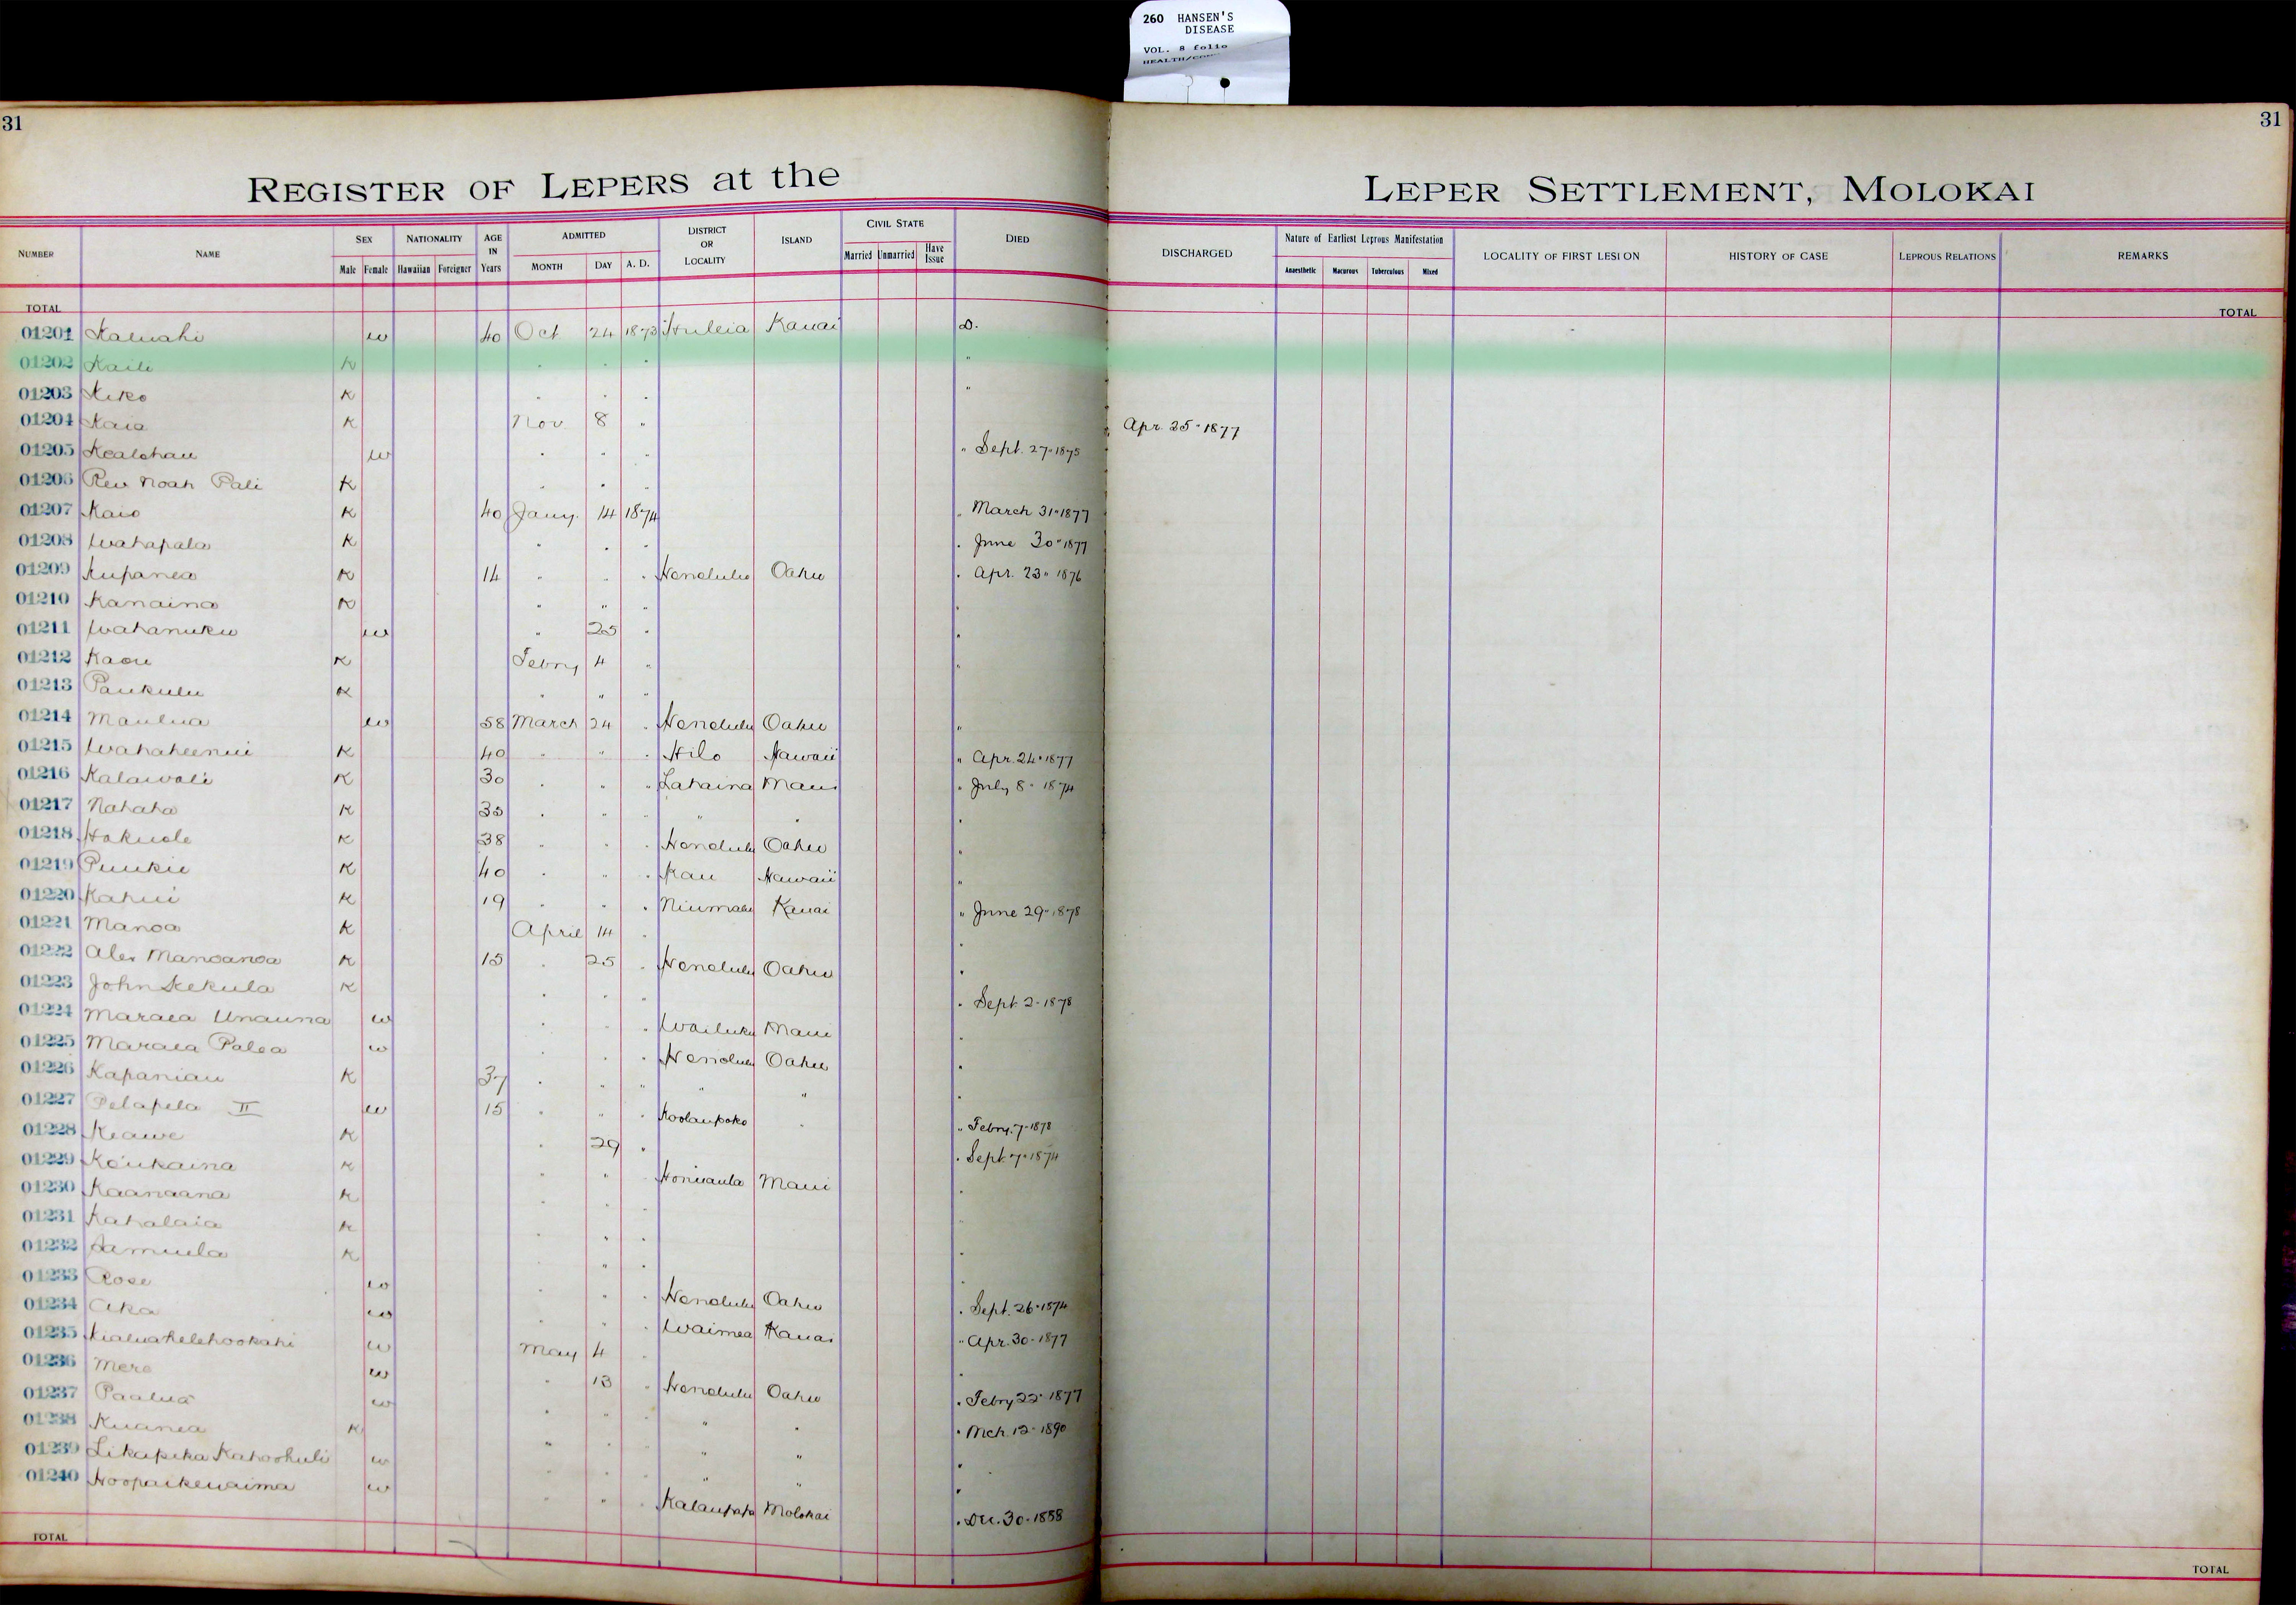 260 HANSEN'S
DISEASE
VOL. 8 folio
31
31
REGISTER OF LEPERS at the
LEPER SETTLEMENT, MOLOKAI
NUMBER NAME SEX Male Female NATIONALITY Hawaiian Foreigner AGE IN Years ADMITTED MONTH DAY A. D. DISTRICT OR LOCALITY ISLAND CIVIL STATE Married Unmarried Have Issue DIED DISCHARGED Nature of Earliest Leprous Manifestation Anaesthetic Macurous Tuberculous Mixed LOCALITY OF FIRST LESION HISTORY OF CASE LEPROUS RELATIONS REMARKS
TOTAL TOTAL
01201 Kaluahi w 40 Oct 24 1873 Huleia Kauai D.
01202 Kaili K " " " "
01203 Kiko K " " " "
01204 Kaia K Nov. 8 " " Apr. 25" 1877
01205 Kealohau w " " " " Sept. 27" 1875
01206 Rev Noah Pali K " " "
01207 Kaio K 40 Jany. 14 1874 " March 31" 1877
01208 Wahapala K " " " " June 30" 1877
01209 Kupanea K 14 " " " Honolulu Oahu " Apr. 23" 1876
01210 Kanaina K " " " "
01211 Wahanuku w " 25 " "
01212 Kaou K Febry 4 " "
01213 Paukulu K " " "
01214 Maulua w 58 March 24 " Honolulu Oahu "
01215 Wahaheenui K 40 " " " Hilo Hawaii " Apr. 24" 1877
01216 Kalawali K 30 " " " Lahaina Maui " July 8" 1874
01217 Nahaha K 35 " " " " " "
01218 Hokuole K 38 " " " Honolulu Oahu "
01219 Puukii K 40 " " " Kau Hawaii "
01220 Kahui K 19 " " " Niumalu Kauai " June 29" 1878
01221 Manoa K April 14 " "
01222 Alex Manoanoa K 15 " 25 " Honolulu Oahu "
01223 John Kekula K " " " " Sept. 2" 1878
01224 Maraea Unauna w " " " Wailuku Maui "
01225 Maraea Palea w " " " Honolulu Oahu "
01226 Kapaniau K 37 " " " " " "
01227 Pelapela II w 15 " " " Koolaupoko " " Febry. 7" 1878
01228 Keawe K " 29 " " Sept. 7" 1874
01229 Koukaina K " " " Honuaula Maui "
01230 Kaanaana K " " "
01231 Kahalaia K " " "
01232 Samuela K " "
01233 Rose w " " " Honolulu Oahu " Sept. 26" 1874
01234 Aka w " " " Waimea Kauai " Apr. 30" 1877
01235 Kialuahelehookahi w May 4 " "
01236 Mere w " 13 " Honolulu Oahu " Febry 22" 1877
01237 Paalua w " " " " " " Mch. 12" 1890
01238 Kuanea K " " " " "
01239 Likapeka Kahoohuli w " " " " "
01240 Hoopaikewaima w " " " Kalaupapa Molokai " Dec. 30" 1888
TOTAL TOTAL